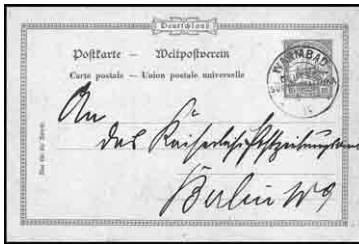 Deutschland
Postkarte — Weltpostverein
Carte postale — Union postale universelle
WARMBAD
An
das Kaiserliche Postzeitungsamt
Berlin W 9